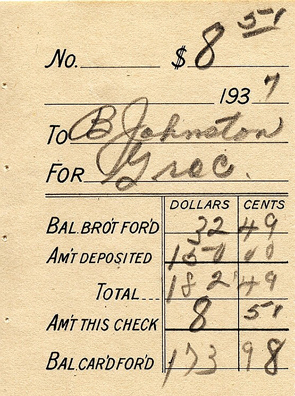 No. $ 8 51
193 7
To B Johnston
FOR Groc.
DOLLARS CENTS
BAL. BRO'T FOR'D 32 49
AM'T DEPOSITED 150 00
TOTAL... 182 49
AM'T THIS CHECK 8 51
BAL. CAR'D FOR'D 173 98